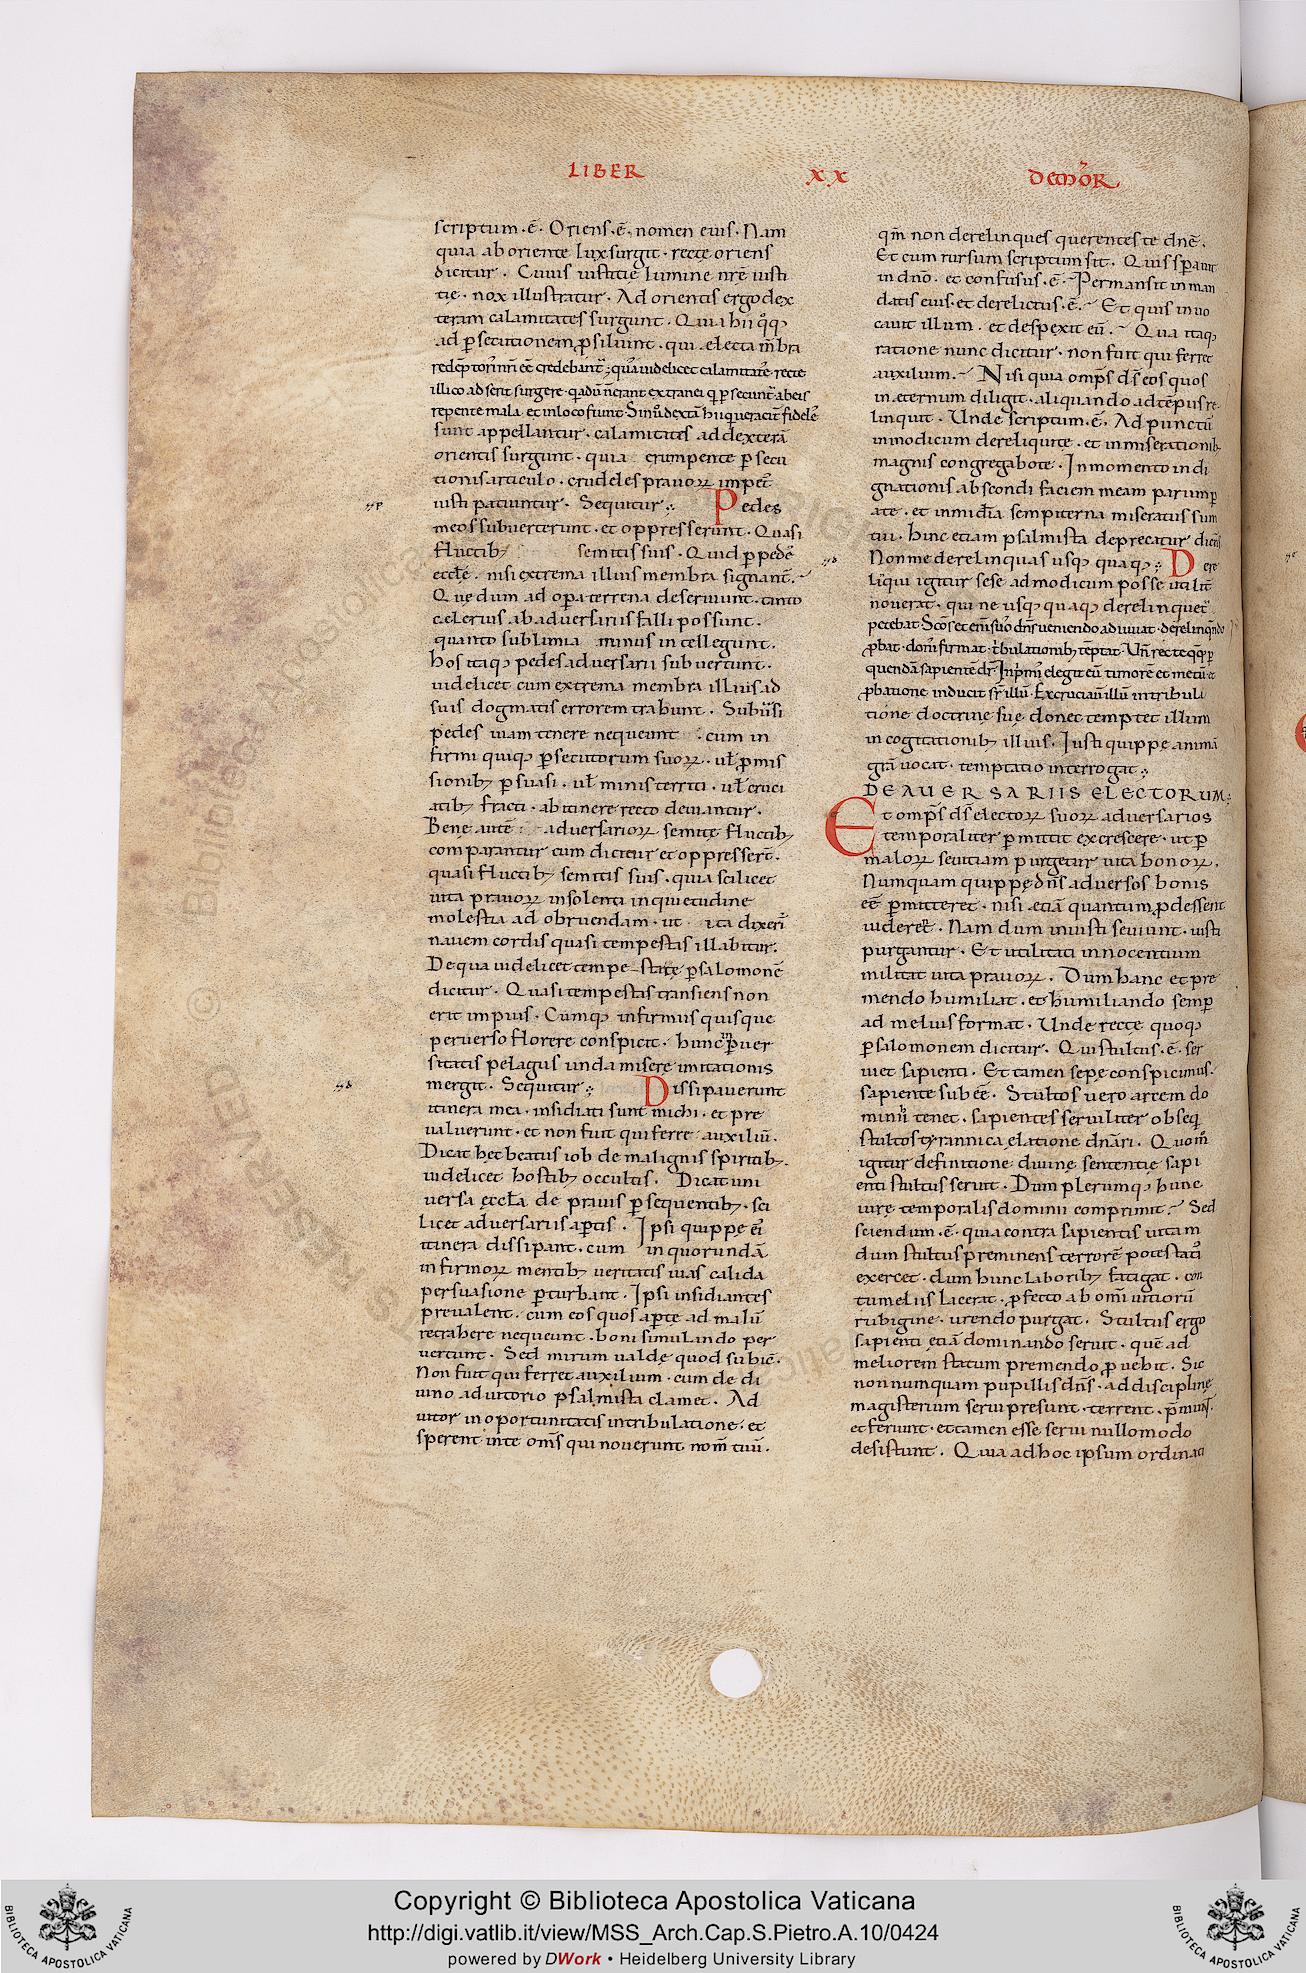 LIBER XX DEMOR̄
scriptum·ē· Oriens·ē, nomen eius· Nam
quia ab oriente lux surgit· recte oriens
dicitur. Cuius iustitię lumine nr̄e iusti
tie· nox illustratur· Ad orientis ergo dex
teram calamitates surgunt· Quia hii q̊q;
ad p̄secutionem ꝓsiliunt· qui electa m̄bra
repente mala· et in loco
sunt appellantur· calamitates ad dexterā
orientis surgunt· quia erumpente p̄secu
tionis articulo· crudeles prauoꝝ impet̄
iusti patiuntur· Sequitur; Pedes
meos subuerterunt· et oppresserunt· Quasi
fluctib; semitis suis· Quid p̄ pedes
eccl̄e· nisi extrema illius membra signant̄·
Quę dum ad oꝑa terrena deseruiunt· tanto
celerius ab aduersariis falli possunt·
quanto sublimia minus intellegunt·
hos itaq; pedes aduersarii subuertunt·
uidelicet cum extrema membra illius ad
suis dogmatis errorem trahunt· Subuersi
pedes uiam tenere nequeunt· cum in
firmi quiq; p̄secutorum suoꝝ· ul̄ ꝓmis
sionib; p̄suasi· ul̄ minis territi· ul̄ cruci
atib; fracti· ab itinere recto deuiantur·
Bene autē aduersarioꝝ semitę fluctib;
comparantur cum dicitur et oppresser̄t·
quasi fluctib; semitis suis· quia scilicet
uita prauoꝝ insolenti inquietudine
molestia ad obruendam· ut ita dixeri̅
nauem cordis quasi tempestas illabitur·
De qua uidelicet tempestate p̄ salomonē
dicitur· Quasi tempestas transiens non
erit impius· Cumq; infirmus quisque
peruerso florere conspicit· hunc ꝑuer
sitatis pelagus unda misere imitationis
mergit· Sequitur; Dissipauerunt
itinera mea· insidiati sunt michi· et pre
ualuerunt· et non fuit qui ferret auxiliū·
Dicat hęc beatus iob de malignis spiritib;·
uidelicet hostib; occultis· Dicat uni
uersa ęccl̄a de prauis p̄sequentib;· sci
licet aduersariis aꝑtis· Ipsi quippe ei̅
itinera dissipant· cum in quorundā
infirmoꝝ mentib; ueritatis uias calida
persuasione ꝑturbant· Ipsi insidiantes
preualent· cum eos quos aꝑte ad malū
retrahere nequeunt· boni simulando per
uertunt· Sed mirum ualdę quod subic̄·
Non fuit qui ferret auxilium· cum de di
uino adiutorio psalmista clamet· Ad
iutor in oportunitatis in tribulatione· et
sperent in te oms̄ qui nouerunt nom̄ tuū·
qm̄ non derelinques querentes te dnē·
Et cum rursum scriptum sit· Quis sꝑauit
in dn̄o· et confusus·ē· Permansit in man
datis eius· et derelictus·ē· Et quis inuo
cauit illum· et despexit eū· Qua itaq;
ratione nunc dicitur· non fuit qui ferret
auxilium· Nisi quia omps̄ ds̄ eos quos
in ęternum diligit· aliquando ad tēpus re
linquit· Unde scriptum·ē· Ad punctū
in modicum dereliqui te· et in miserationib;
magnis congregabo te· In momento indi
gnationis abscondi faciem meam parump
a te· et in mīdia sempiterna miseratus sum
tui· hinc etiam psalmista deprecatur dicens
Non me derelinquas usq; quaq;; Dere
linqui igitur sese ad modicum posse utilit̄
nouerat· qui ne usq; quaq; derelinqueret̄
petebat·
ꝓbatione inducit sr̄ illū· Excruciauit illū in tribula
tione doctrinę suę donec temptet illum
in cogitationib; illius· Iusti quippe animā
grā̄ uocat· temptatio interrogat;
DE AUERSARIIS ELECTORUM;
Et omps̄ ds̄ electoꝝ suoꝝ aduersarios
temporaliter ꝑmittit excrescere· ut ꝑ
maloꝝ seuitiam purgetur uita bonoꝝ·
Numquam quippe dn̄s aduersos bonis
eē ꝑmitteret· nisi etiā quantum ꝓdessent
uideret· Nam dum iniusti seuiunt· iusti
purgantur· Et utilitati innocentium
militat uita prauoꝝ· Dum hanc et pre
mendo humiliat· et humiliando semꝑ
ad melius format· Unde recte quoq;
ꝑ salomonem dicitur· Qui stultus·ē· ser
uiet sapienti· Et tamen sepe conspicimus·
sapiente sub eē· Stultos uero arcem do
minii tenet· sapientes seruiliter obseq
stultos tyrannica elatione dn̄ari· Quom̊
igitur definitione diuinę sententię sapi
enti stultus seruit· Dum plerumq; hunc
iure temporalis dominii comprimit· Sed
sciendum·ē· quia contra sapientis uitam
dum stultus preminens terrorē potestatis
exercet· dum hunc laborib; fatigat· con
tumeliis lacerat· ꝓfecto ab omi̅ uitiorū
rubigine· urendo purgat· Stultus ergo
sapienti etiā dominando seruit· quē ad
meliorem statum premendo ꝓuehit· Sic
non numquam pupillis dn̄s· ad disciplinę
magisterium serui presunt· terrent· p̄munt·
et feriunt· et tamen esse serui nullomodo
desistunt· Quia ad hoc ipsum ordinati
Copyright © Biblioteca Apostolica Vaticana
http://digi.vatlib.it/view/MSS_Arch.Cap.S.Pietro.A.10/0424
powered by DWork • Heidelberg University Library
BIBLIOTECA APOSTOLICA VATICANA
BIBLIOTECA APOSTOLICA VATICANA